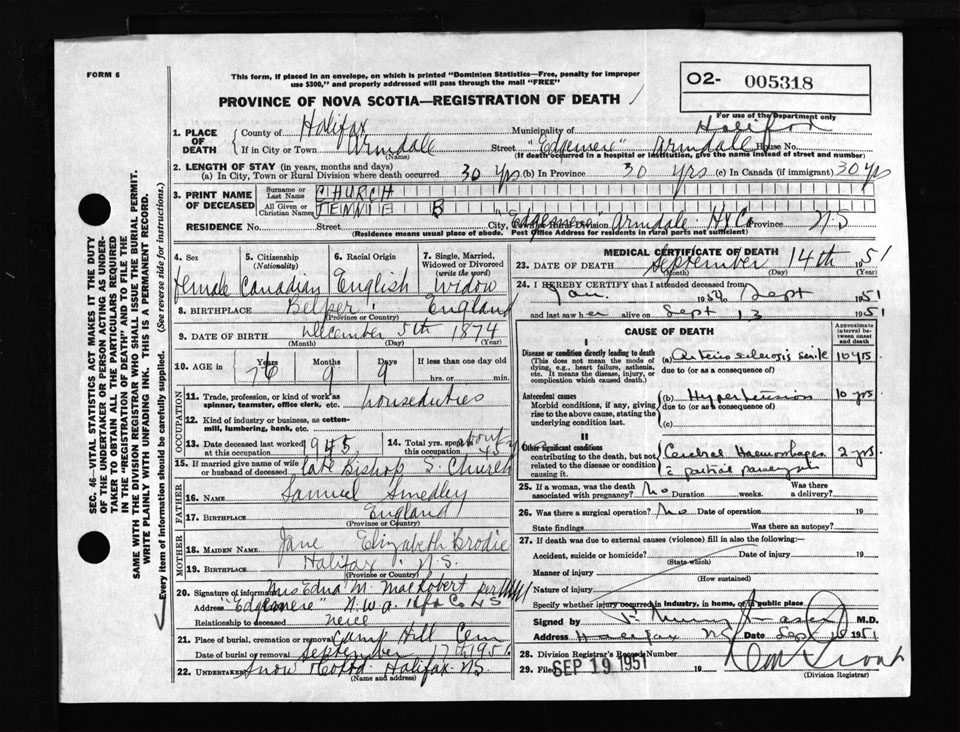 FORM 6
This form, if placed in an envelope, on which is printed "Dominion Statistics—Free, penalty for improper
use $300," and properly addressed will pass through the mail "FREE"
O2- 005318
For use of the Department only
PROVINCE OF NOVA SCOTIA—REGISTRATION OF DEATH
1. PLACE OF DEATH
County of Halifax Municipality of Halifax
If in City or Town Armdale (Name) Street "Edgemere" Armdale House No.
(If death occurred in a hospital or institution, give the name instead of street and number)
2. LENGTH OF STAY (in years, months and days)
(a) In City, Town or Rural Division where death occurred 30 yrs (b) In Province 30 yrs (c) In Canada (if immigrant) 30 yrs
3. PRINT NAME OF DECEASED
Surname or Last Name CHURCH
All Given or Christian Names JENNIE B
RESIDENCE No. Street City, Town or Rural Division "Edgemere" Armdale Hx Co Province N.S
(Residence means usual place of abode. Post Office Address for residents in rural parts not sufficient)
4. Sex female
5. Citizenship (Nationality) Canadian
6. Racial Origin English
7. Single, Married, Widowed or Divorced (write the word) Widow
8. BIRTHPLACE Belper England
(Province or Country)
9. DATE OF BIRTH December 5th 1874
(Month) (Day) (Year)
10. AGE in Years 76 Months 9 Days 9 If less than one day old
hrs. or min.
OCCUPATION
11. Trade, profession, or kind of work as spinner, teamster, office clerk, etc. houseduties
12. Kind of industry or business, as cotton-mill, lumbering, bank, etc.
13. Date deceased last worked at this occupation 1945
14. Total yrs. spent in this occupation about 45 yrs
15. If married give name of wife or husband of deceased late Bishop S. Church
FATHER
16. Name Samuel Smedley
17. BIRTHPLACE England
(Province or Country)
MOTHER
18. MAIDEN NAME Jane Elizabeth Brodie
19. BIRTHPLACE Halifax N.S.
(Province or Country)
20. Signature of informant Mrs Edna M. MacRobert per
Address "Edgemere" N.W.A. Hfx Co NS
Relationship to deceased neice
21. Place of burial, cremation or removal Camp Hill Cem
Date of burial or removal September 17th 1951
22. UNDERTAKER Snow & Co Ltd. Halifax NS.
(Name and address)
MEDICAL CERTIFICATE OF DEATH
23. DATE OF DEATH September 14th 1951
(Month) (Day) (Year)
24. I HEREBY CERTIFY that I attended deceased from
Jan. 19 to Sept 1951
and last saw her alive on Sept 13 1951
CAUSE OF DEATH
Approximate interval between onset and death
I
Disease or condition directly leading to death (a) Arteriosclerosis senile 10 yrs.
(This does not mean the mode of dying, e.g., heart failure, asthenia, etc. It means the disease, injury, or complication which caused death.)
due to (or as a consequence of)
Antecedent causes (b) Hypertension 10 yrs.
Morbid conditions, if any, giving rise to the above cause, stating the underlying condition last.
due to (or as a consequence of)
(c)
II
Other significant conditions contributing to the death, but not related to the disease or condition causing it.
Cerebral Haemorrhages 2 yrs.
25. If a woman, was the death associated with pregnancy? No Duration weeks. Was there a delivery?
26. Was there a surgical operation? No Date of operation 19
State findings Was there an autopsy?
27. If death was due to external causes (violence) fill in also the following:—
Accident, suicide or homicide? Date of injury 19
(State which)
Manner of injury
(How sustained)
Nature of injury
Specify whether injury occurred in industry, in home, or in public place
Signed by M.D.
Address Halifax NS Date Sept 1951
28. Division Registrar's Record Number
29. Filed SEP 19 1951 19
(Division Registrar)
SEC. 46—VITAL STATISTICS ACT MAKES IT THE DUTY
OF THE UNDERTAKER OR PERSON ACTING AS UNDER-
TAKER TO OBTAIN ALL THE PARTICULARS REQUIRED
IN THE "REGISTRATION OF DEATH" AND TO FILE THE
SAME WITH THE DIVISION REGISTRAR WHO SHALL ISSUE THE BURIAL PERMIT.
WRITE PLAINLY WITH UNFADING INK. THIS IS A PERMANENT RECORD.
Every item of information should be carefully supplied. (See reverse side for instructions.)